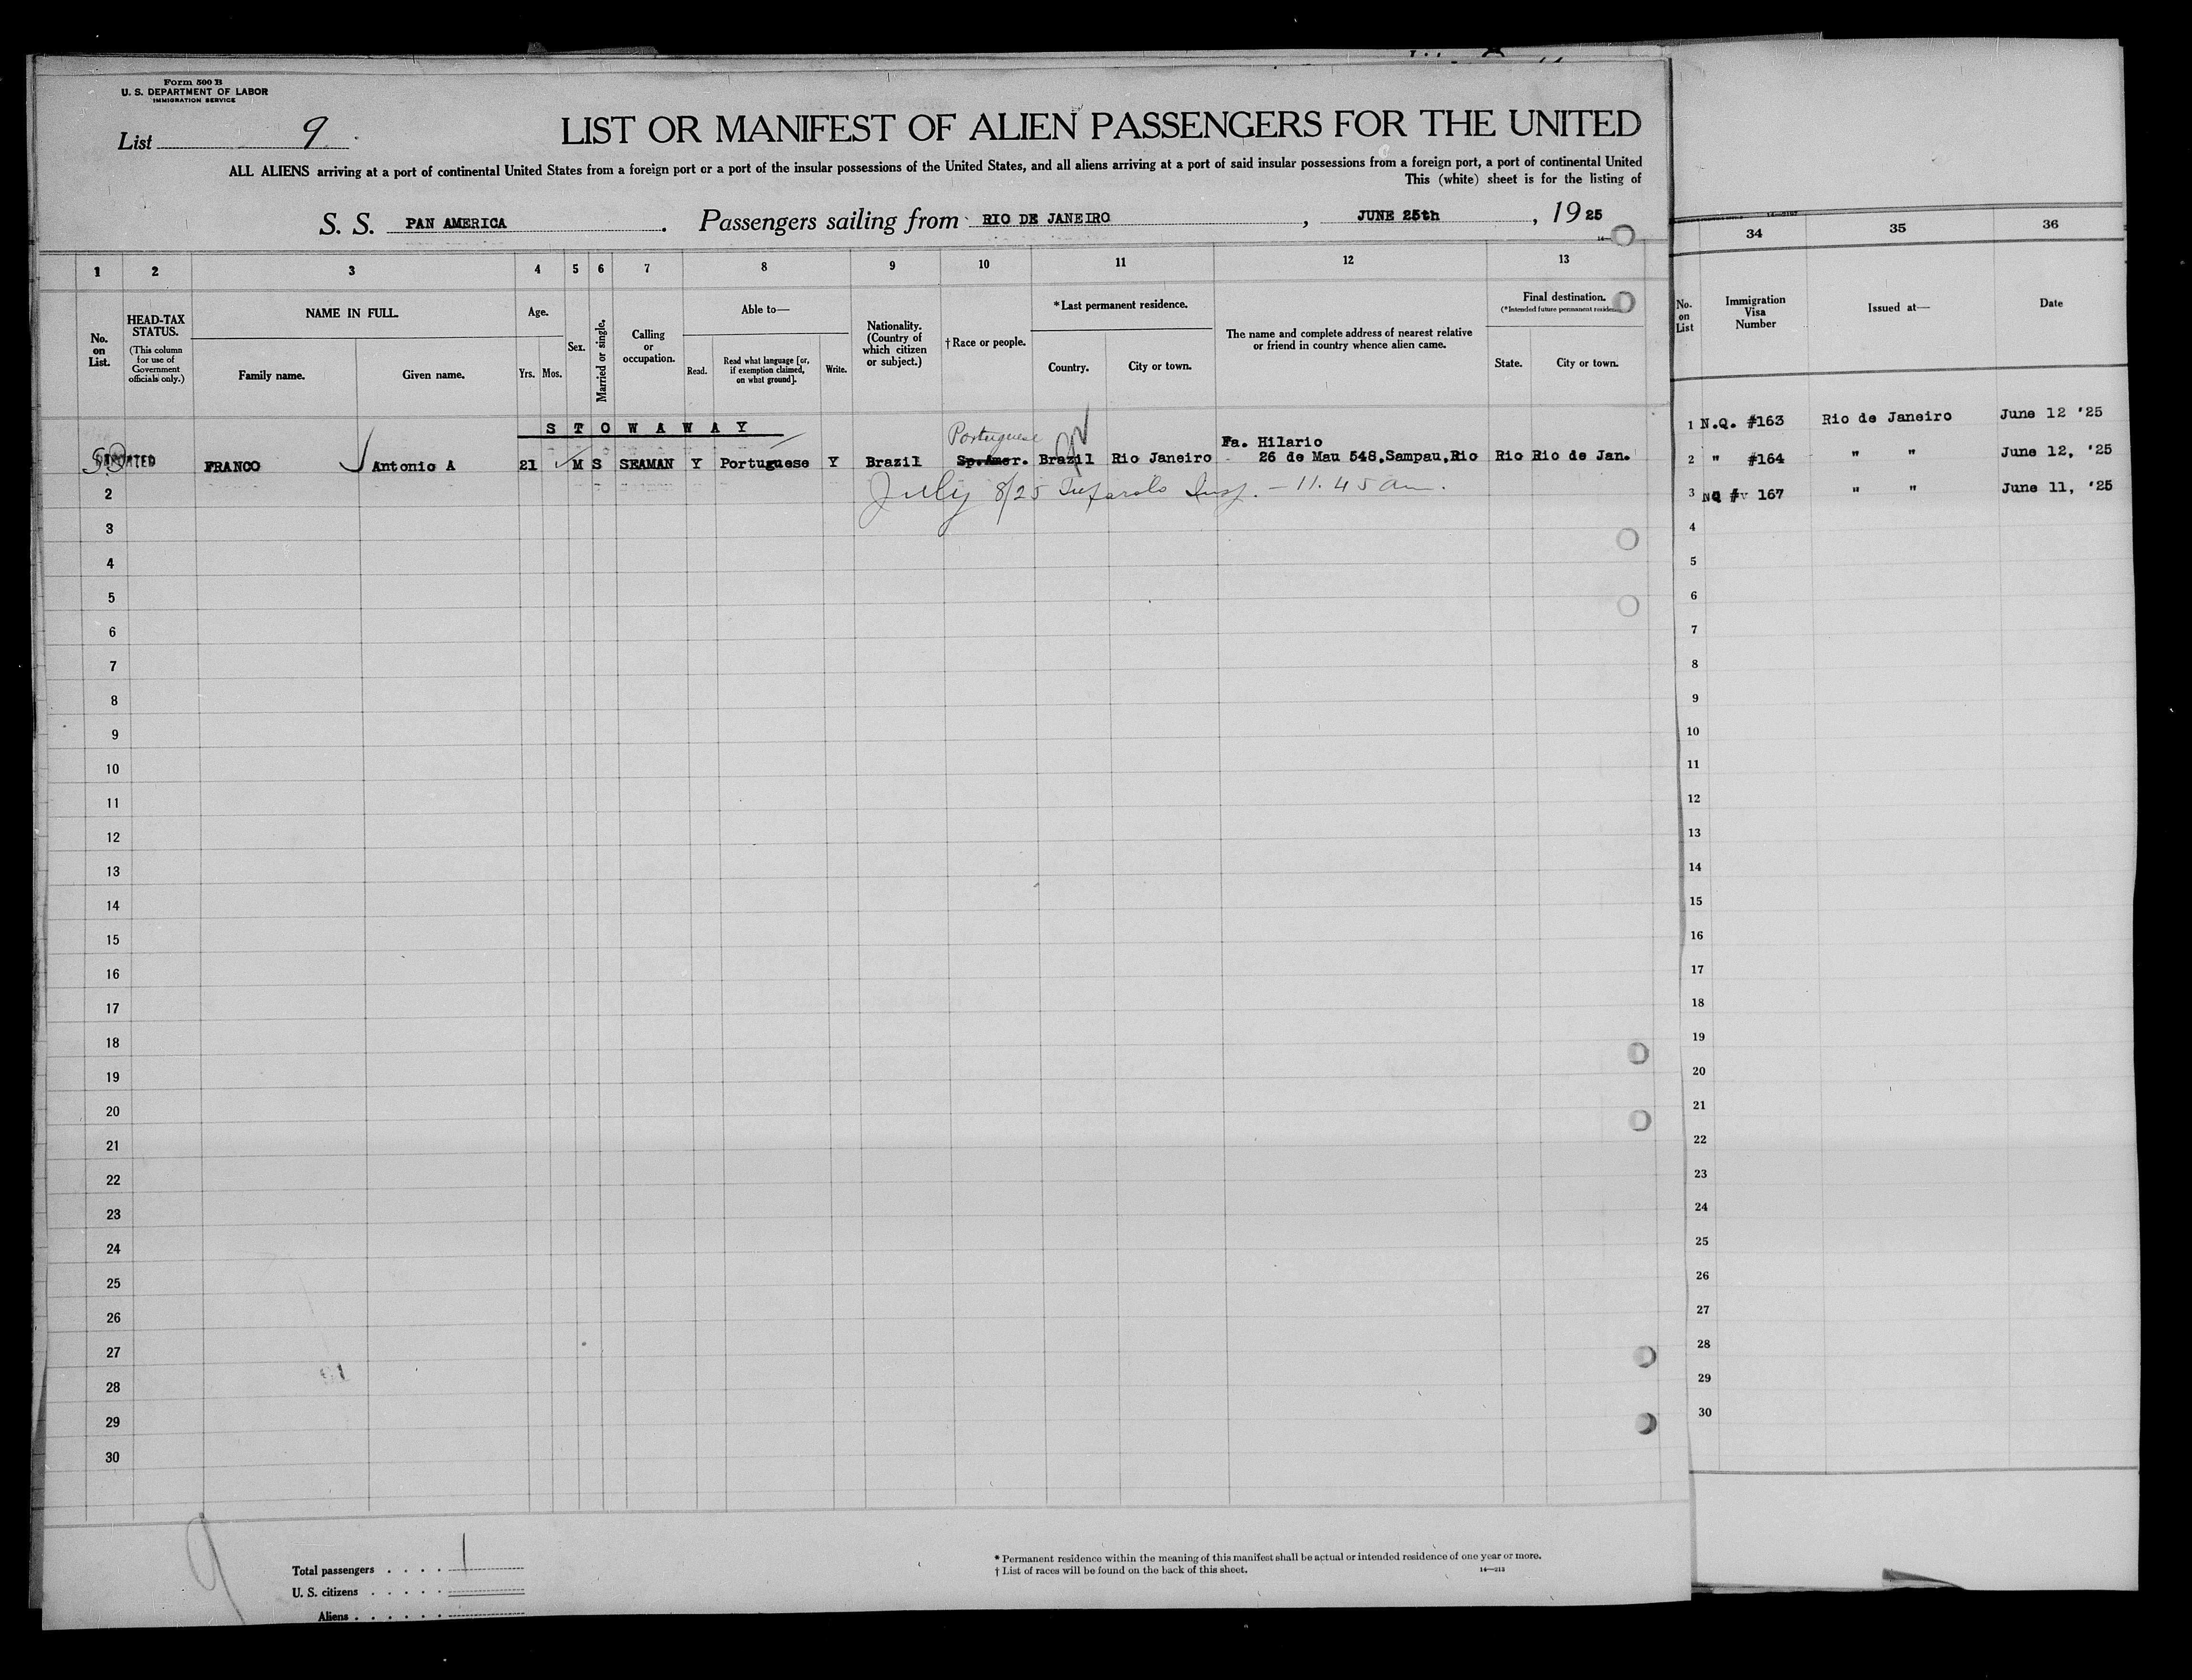 Form 500 B
U. S. DEPARTMENT OF LABOR
IMMIGRATION SERVICE
List 9
LIST OR MANIFEST OF ALIEN PASSENGERS FOR THE UNITED
ALL ALIENS arriving at a port of continental United States from a foreign port or a port of the insular possessions of the United States, and all aliens arriving at a port of said insular possessions from a foreign port, a port of continental United
This (white) sheet is for the listing of
S. S. PAN AMERICA. Passengers sailing from RIO DE JANEIRO, JUNE 25th, 1925
1 2 3 4 5 6 7 8 9 10 11 12 13
No. on List.
HEAD-TAX STATUS.
(This column for use of Government officials only.)
NAME IN FULL.
Family name.
Given name.
Age.
Yrs. Mos.
Sex.
Married or single.
Calling or occupation.
Able to—
Read.
Read what language [or, if exemption claimed, on what ground].
Write.
Nationality. (Country of which citizen or subject.)
† Race or people.
*Last permanent residence.
Country.
City or town.
The name and complete address of nearest relative or friend in country whence alien came.
Final destination.
State.
City or town.
S T O W A W A Y
Portuguese
Fa. Hilario
DEPORTED FRANCO Antonio A 21 M S SEAMAN Y Portuguese Y Brazil Sp.Amer. Brazil Rio Janeiro 26 de Mau 548,Sampau,Rio Rio Rio de Jan.
2 July 8/25 Insp. - 11.45 am.
3
4
5
6
7
8
9
10
11
12
13
14
15
16
17
18
19
20
21
22
23
24
25
26
27
28
29
30
9
Total passengers . . . . 1
U. S. citizens . . . . .
Aliens . . . . . .
* Permanent residence within the meaning of this manifest shall be actual or intended residence of one year or more.
† List of races will be found on the back of this sheet.
14—213
34 35 36
No. on List
Immigration Visa Number
Issued at—
Date
1 N.Q. #163 Rio de Janeiro June 12 '25
2 " #164 " " June 12, '25
3 NQ # 167 " " June 11, '25
4
5
6
7
8
9
10
11
12
13
14
15
16
17
18
19
20
21
22
23
24
25
26
27
28
29
30